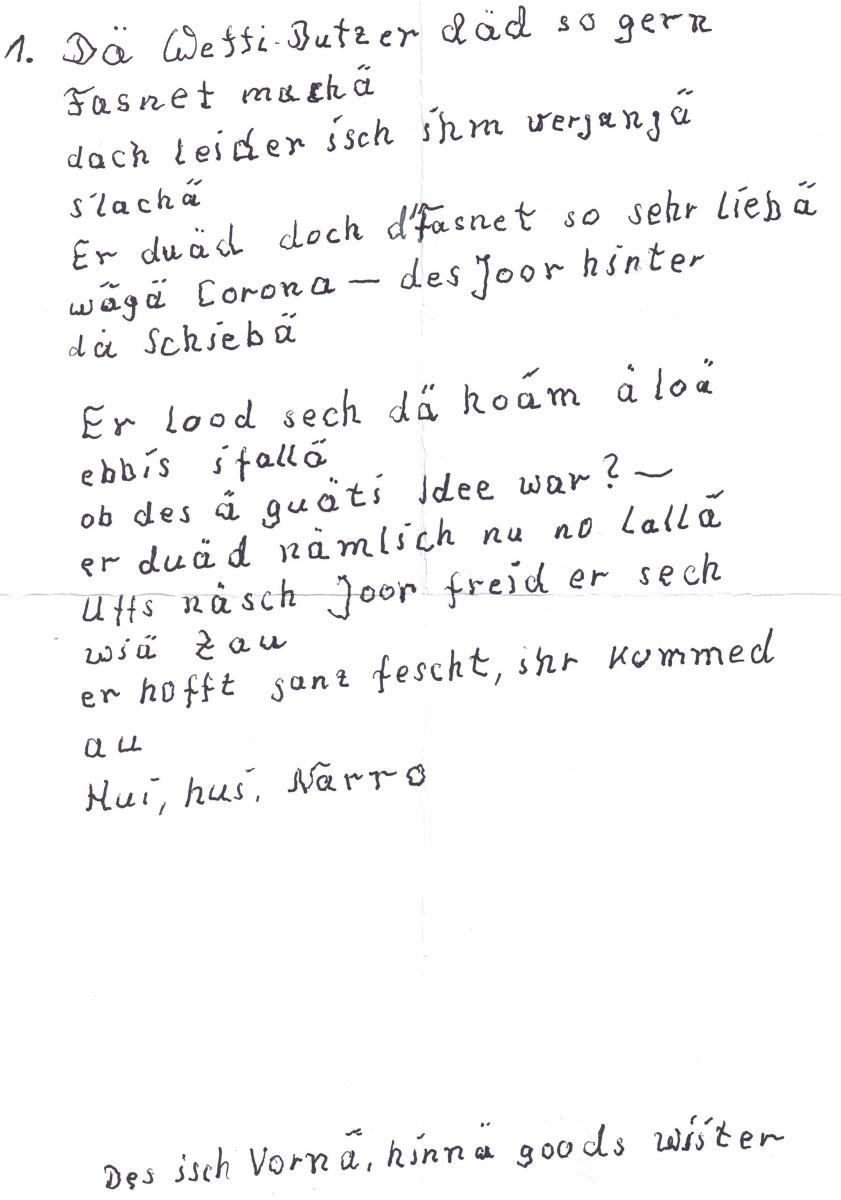 1. Dä Weffi-Butzer däd so gern
Fasnet machä
doch leider isch ihm vergangä
s'lachä
Er duäd doch d'Fasnet so sehr liebä
wägä Corona – des Joor hinter
dä schiebä
Er lood sech dä hoam äloä
ebbis ifallä
ob des ä guäti Idee war? –
er duäd nämlich nu no lallä
Uffs näsch Joor freid er sech
wiä Zau
er hofft ganz fescht, ihr kummed
au
Hui, hui, Narro
Des isch Vornä, hinnä goods wiiter